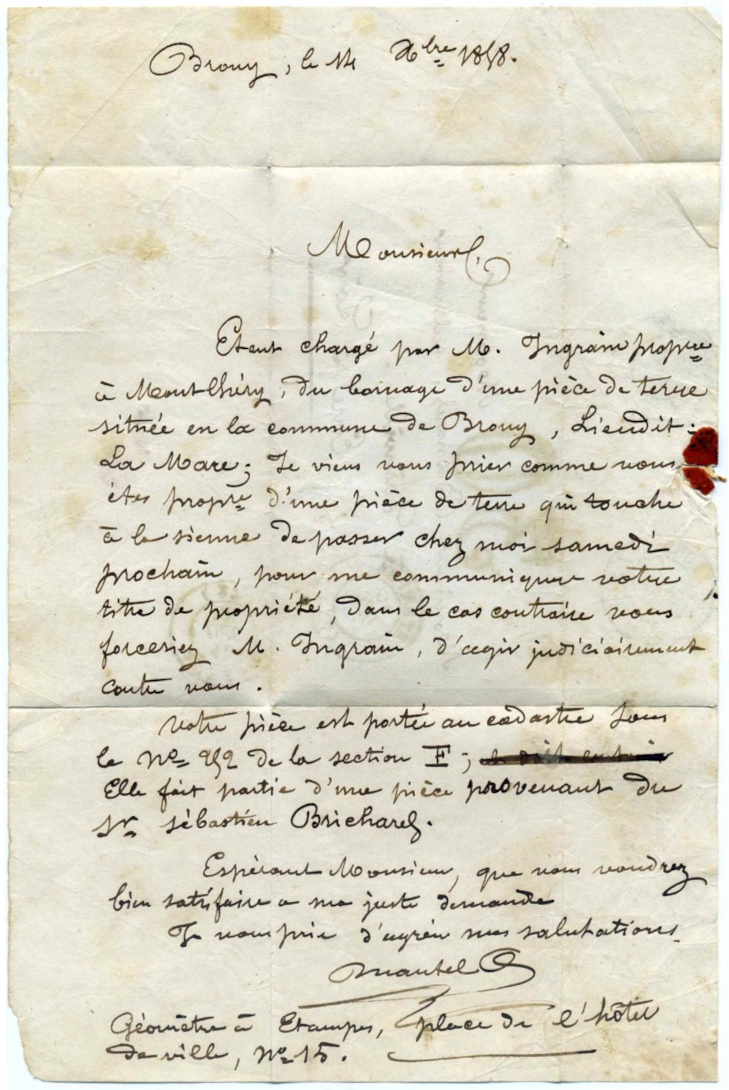 Brouy, le 14 Xbre 1858.
Monsieur,
Etant chargé par M. Ingrain propre
à Montlhéry, du bornage d'une pièce de terre
située en la commune de Brouy, Lieudit :
La Mare ; Je viens vous prier comme vous
êtes propre d'une pièce de terre qui touche
à la sienne de passer chez moi samedi
prochain, pour me communiquer votre
titre de propriété, dans le cas contraire vous
forceriez M. Ingrain, d'agir judiciairement
contre vous.
Votre pièce est portée au cadastre sous
le No 252 de la section F ;
Elle fait partie d'une pièce provenant du
Sr Sébastien Brichard.
Espérant Monsieur, que vous voudrez
bien satisfaire a ma juste demande
Je vous prie d'agréer mes salutations
Mantel
Géomètre à Etampes, place de l'hôtel
de ville, No 15.